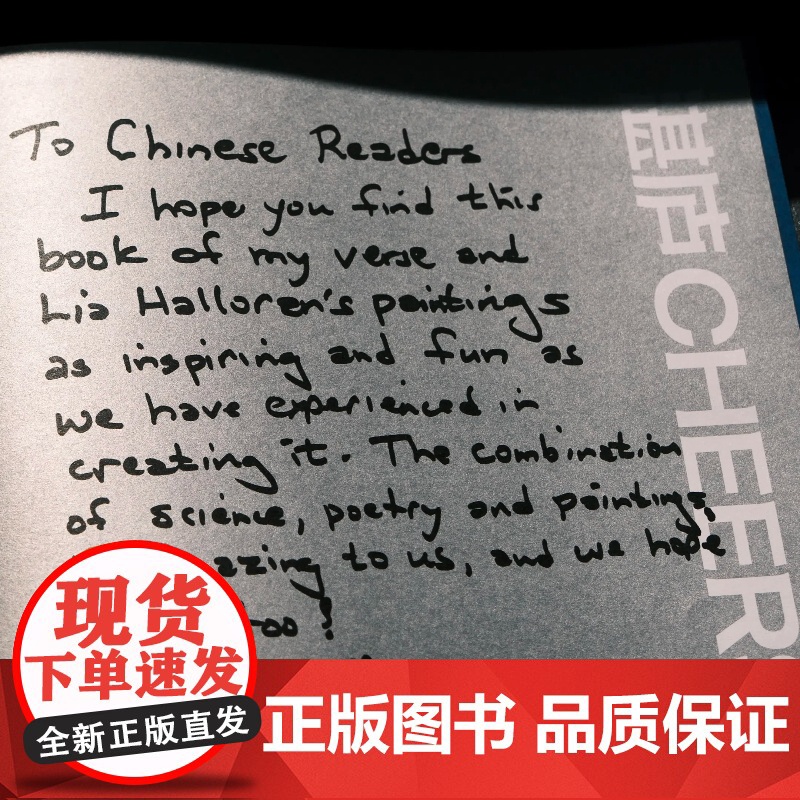 To Chinese Readers
I hope you find this
book of my verse and
Lia Halloran's paintings
as inspiring and fun as
we have experienced in
creating it. The combination
of science, poetry and paintings,
to us, and we hope
too!
湛庐 CHEERS
现货
下单速发
全新正版直发
正版图书 品质保证